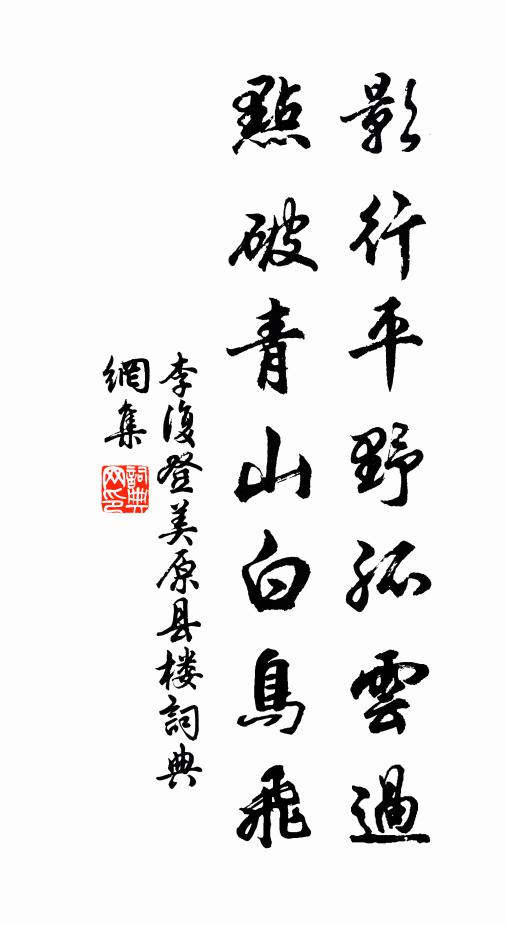 影行平野孤雲過
點破青山白鳥飛
李復登美原县楼詞典
網集
詞典
网印